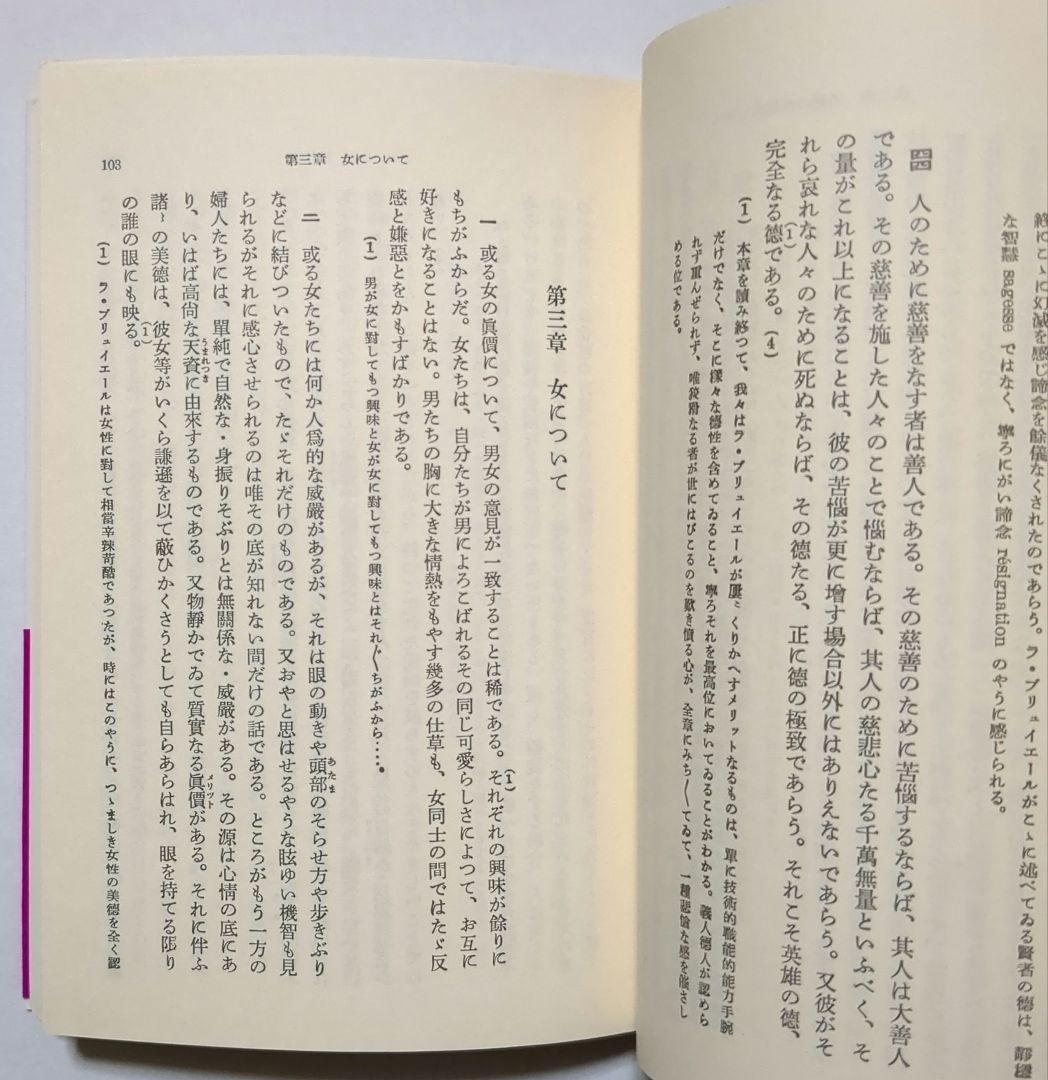 終にこゝに幻滅を感じ諦念を餘儀なくされたのであらう。ラ・ブリュイエールがこゝに述べてゐる賢者の德は、靜謐
な智慧 sagesse ではなく、寧ろにがい諦念 résignation のやうに感じられる。
四四 人のために慈善をなす者は善人である。その慈善のために苦惱するならば、其人は大善人
である。その慈善を施した人々のことで惱むならば、其人の慈悲心たる千萬無量といふべく、そ
の量がこれ以上になることは、彼の苦惱が更に增す場合以外にはありえないであらう。又彼がそ
れら哀れな人々のために死ぬならば、その德たる、正に德の極致であらう。それこそ英雄の德、
完全なる德である。(1)(4)
(1) 本章を讀み終つて、我々はラ・ブリュイエールが屢〻くりかへすメリットなるものは、單に技術的職能的能力手腕
だけでなく、そこに樣々な德性を含めてゐること、寧ろそれを最高位においてゐることがわかる。義人德人が認めら
れず重んぜられず、唯狡猾なる者が世にはびこるのを歎き憤る心が、全章にみち〳〵てゐて、一種悲愴な感を催さし
める位である。
103
第三章 女について
第三章 女について
一 或る女の眞價について、男女の意見が一致することは稀である。それぞれの興味が餘りに(1)
もちがふからだ。女たちは、自分たちが男によろこばれるその同じ可愛らしさによつて、お互に
好きになることはない。男たちの胸に大きな情熱をもやす幾多の仕草も、女同士の間ではたゞ反
感と嫌惡とをかもすばかりである。
(1) 男が女に對してもつ興味と女が女に對してもつ興味とはそれ〴〵ちがふから……。
二 或る女たちには何か人爲的な威嚴があるが、それは眼の動きや頭部あたまのそらせ方や步きぶり
などに結びついたもので、たゞそれだけのものである。又おやと思はせるやうな眩ゆい機智も見
られるがそれに感心させられるのは唯その底が知れない間だけの話である。ところがもう一方の
婦人たちには、單純で自然な・身振りそぶりとは無關係な・威嚴がある。その源は心情の底にあ
り、いはば高尙な天資うまれつきに由來するものである。又物靜かでゐて質實なる眞價メリットがある。それに伴ふ
諸〻の美德は、彼女等がいくら謙遜を以て蔽ひかくさうとしても自らあらはれ、眼を持てる限り
の誰の眼にも映る。(1)
(1) ラ・ブリュイエールは女性に對して相當辛辣苛酷であつたが、時にはこのやうに、つゝましき女性の美德を全く認